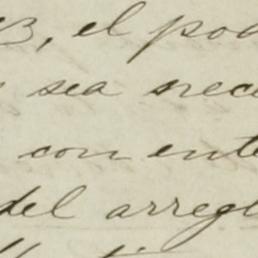 el pod
sea nece
con ente
del arregl